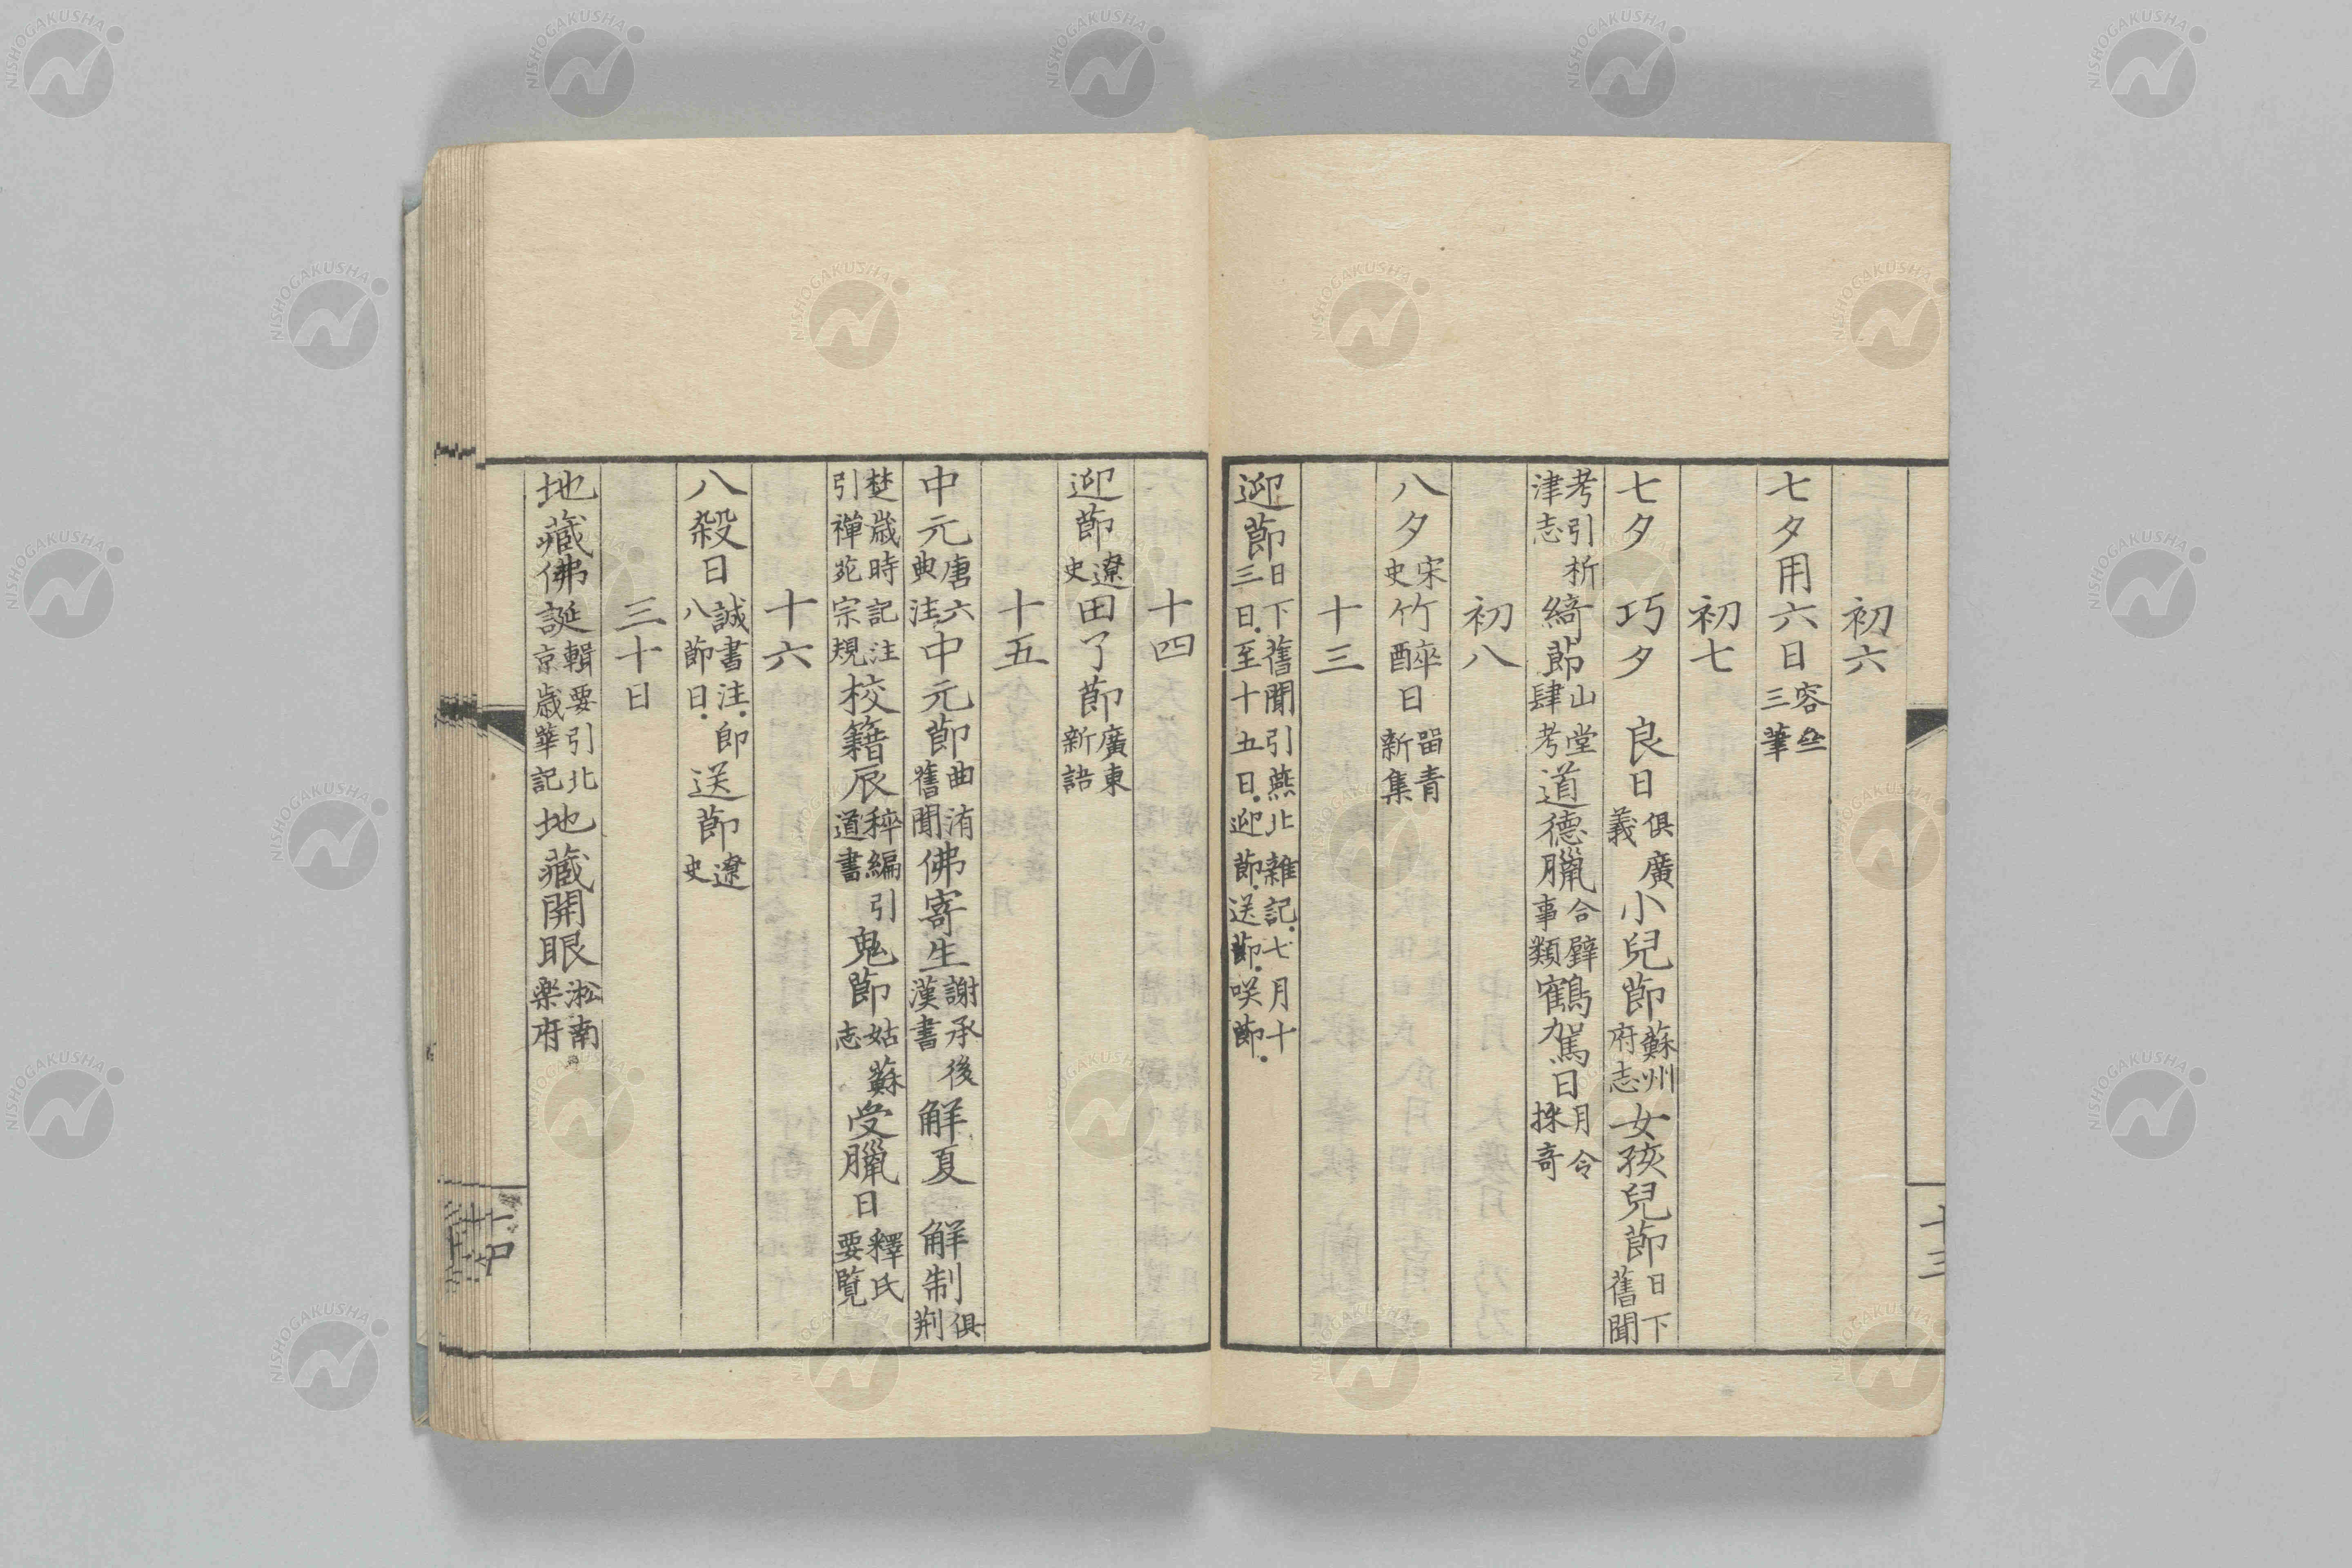 初六
七夕用六日容三筆
初七
七夕 巧夕 良日俱廣義小兒節蘇州府志女孩兒節日下舊聞
考引析津志綺節山堂肆考道德臘合璧事類鶴駕日月令採奇
初八
八夕宋史竹醉日留青新集
十三
迎節日下舊聞引燕北雜記七月十三日至十五日迎節送節咲節
十三
十四
迎節遼史田了節廣東新語
十五
中元唐六典注中元節曲洧舊聞佛寄生謝承後漢書解夏 解制俱荆
楚歲時記注引禪苑宗規校籍辰稡編引道書鬼節姑蘇志受臘日釋氏要覽
十六
八殺日誠書注即八節日送節遼史
三十日
地藏佛誕輯要引北京歲華記地藏開眼淞南樂府
NISHOGAKUSHA